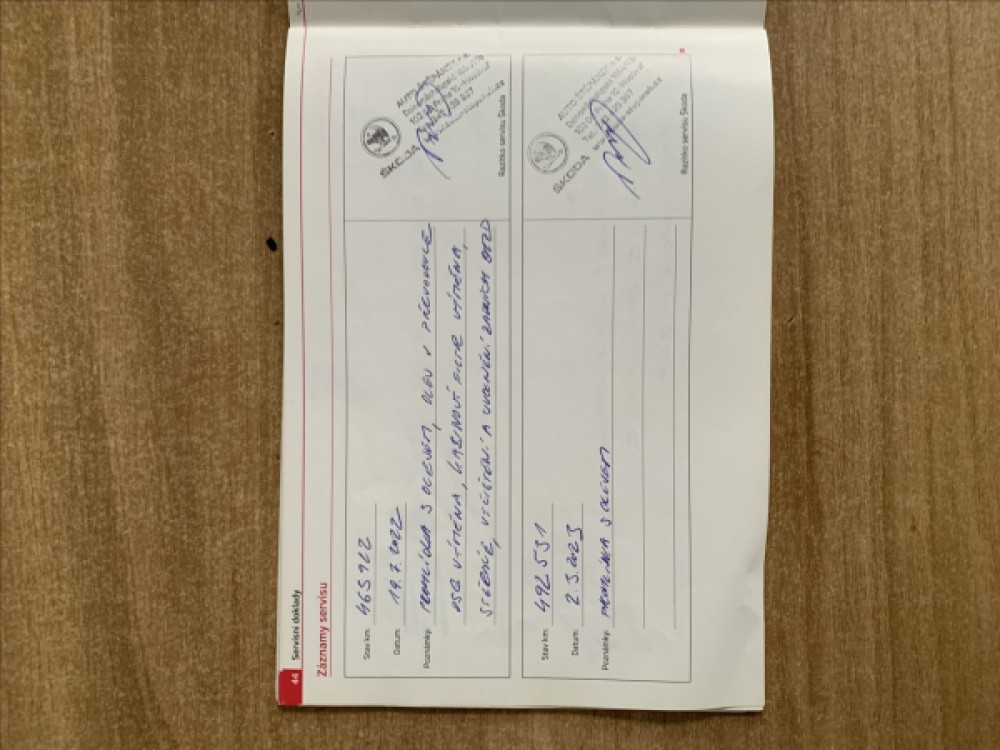 44 Servisní doklady
Záznamy servisu
Stav km: 463962
Datum: 19.7.2022
Poznámky: PROHLÍDKA S OLEJEM, OLEJ V PŘEVODOVCE
DSG VÝMĚNA, KABINOVÝ FILTR VÝMĚNA,
STĚRAČE, VYČIŠTĚNÍ A UVOLNĚNÍ ZADNÍCH BRZD
ŠKODA
Razítko servisu Škoda
Stav km: 492531
Datum: 2.3.2023
Poznámky: PROHLÍDKA S OLEJEM
ŠKODA
Razítko servisu Škoda